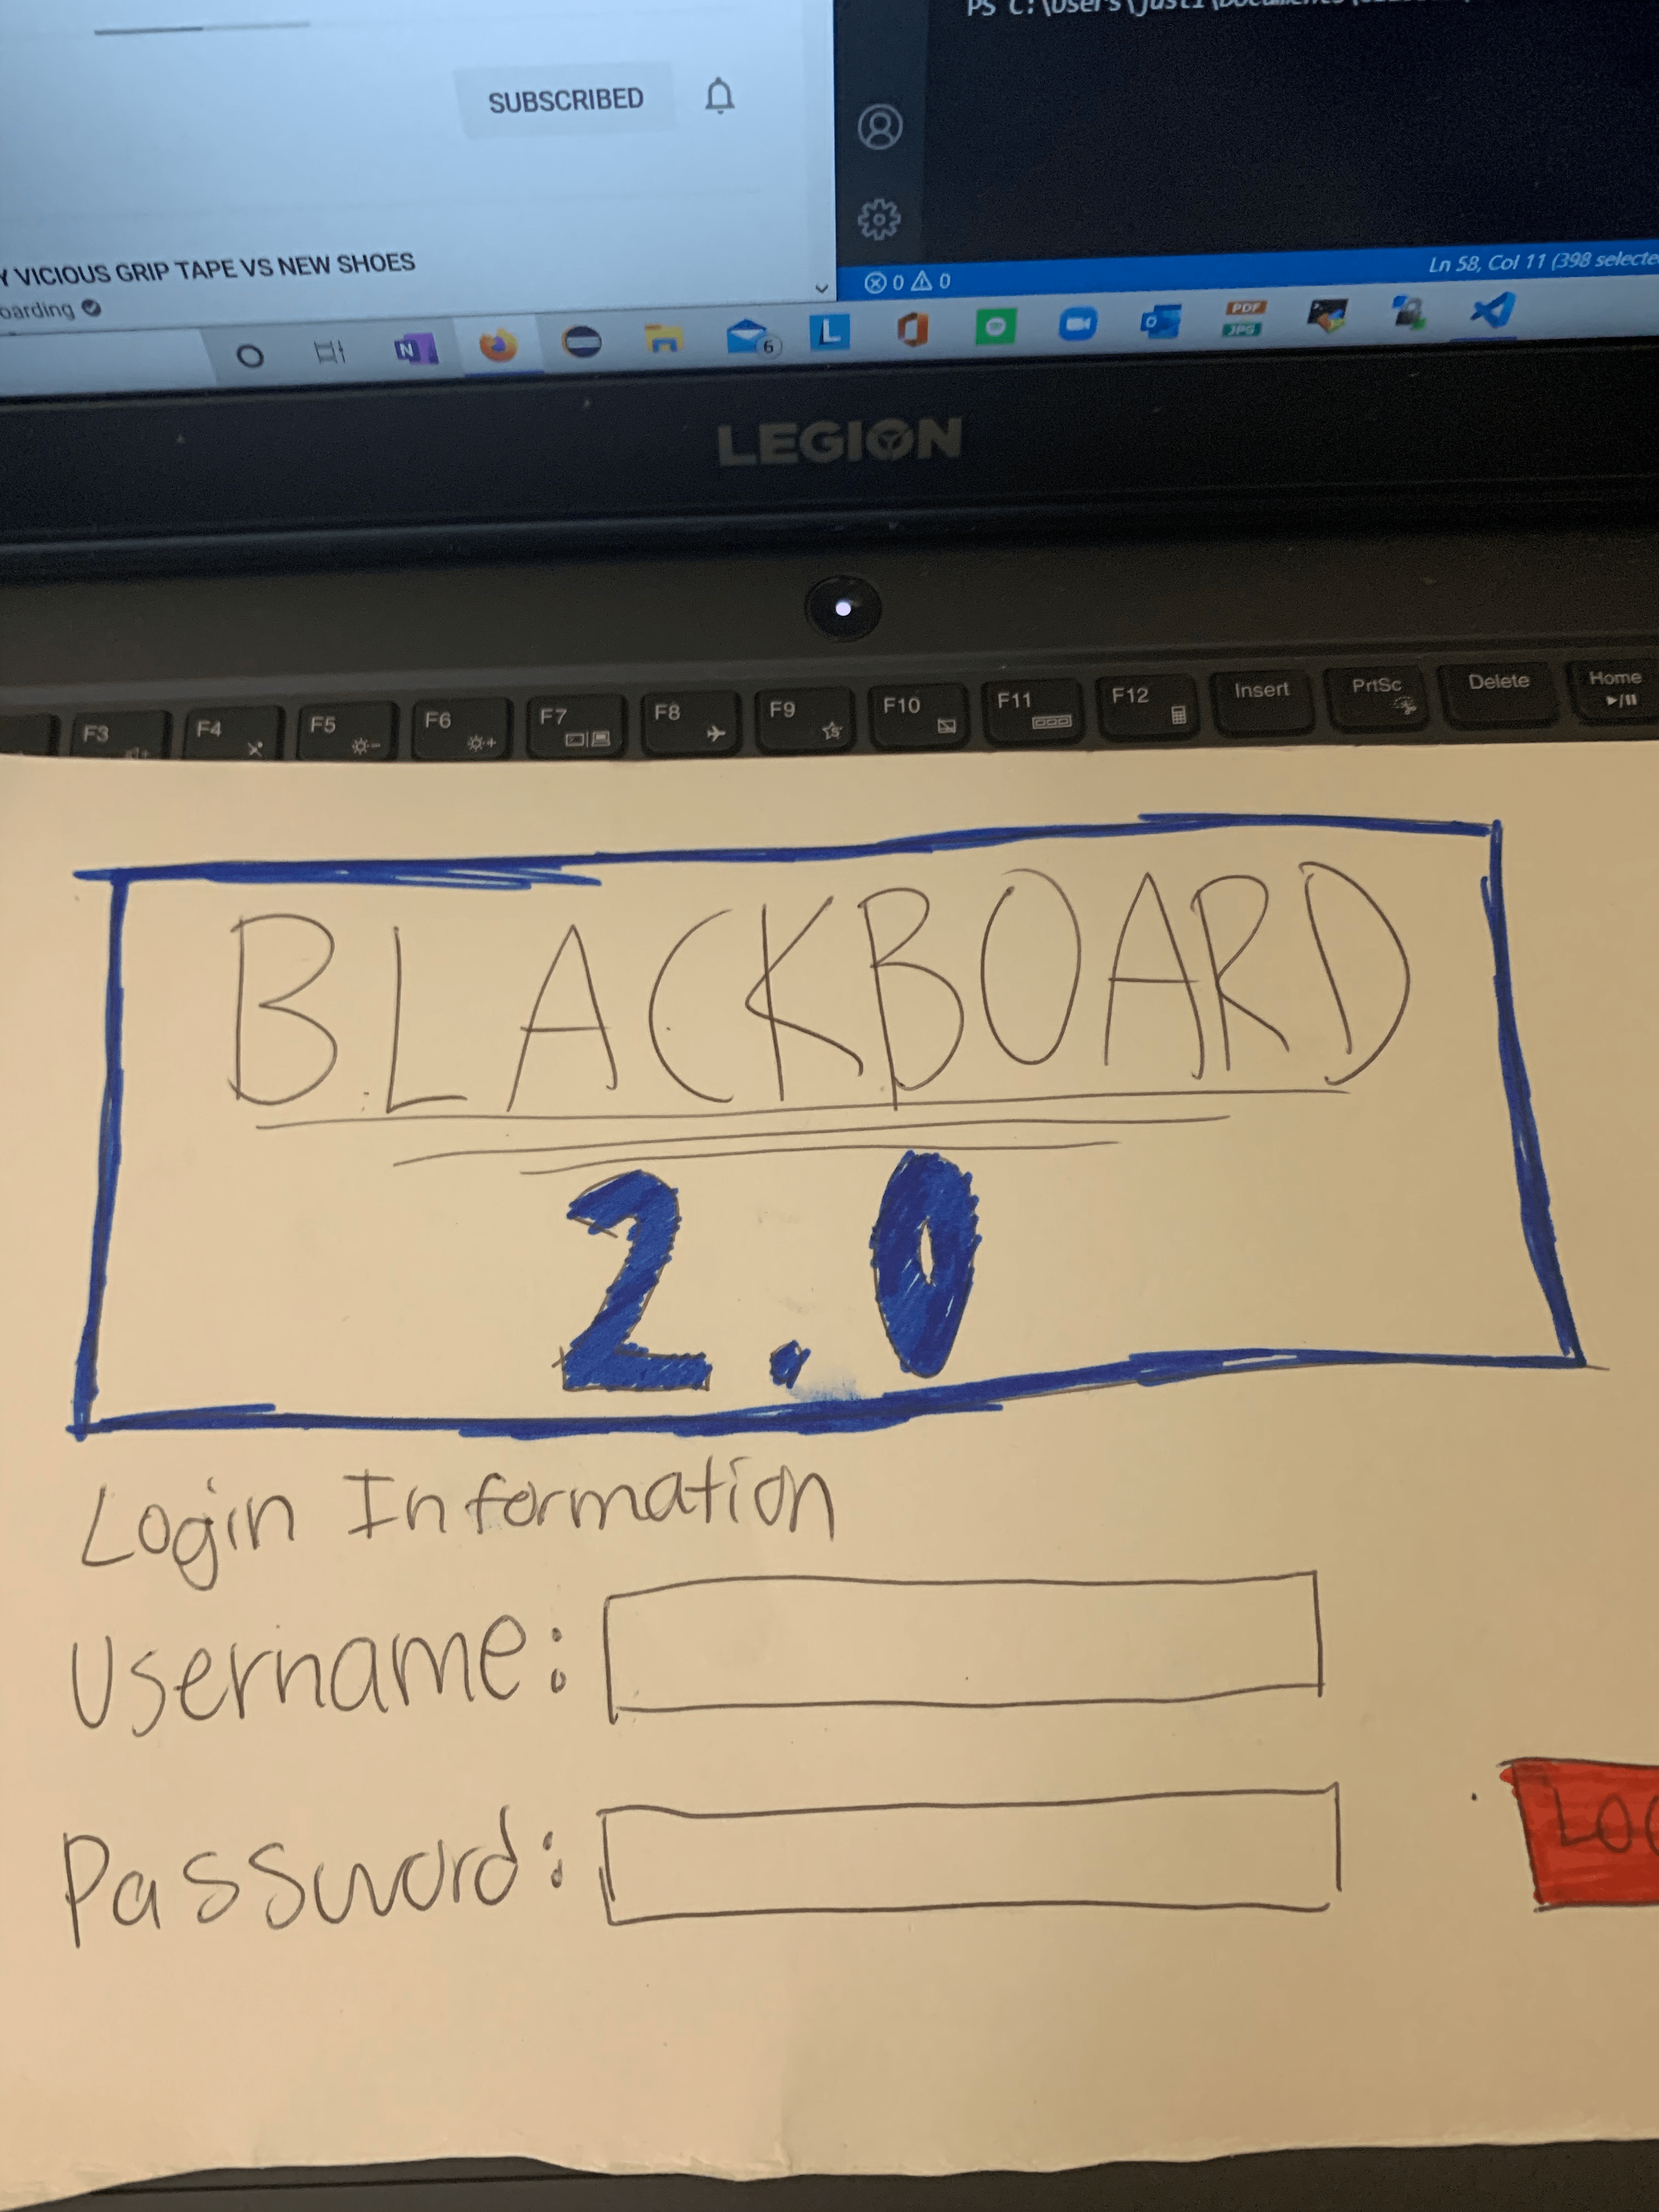 PS C:\Users\justi\Documents\
SUBSCRIBED
VICIOUS GRIP TAPE VS NEW SHOES
oarding
0 0
Ln 58, Col 11 (398 selecte
N
6
L
O
PDF
JPG
LEGION
F3 F4 F5 F6 F7 F8 F9 F10 F11 F12 Insert PrtSc Delete Home
BLACKBOARD
2.0
Login Information
Username:
Password:
LOG